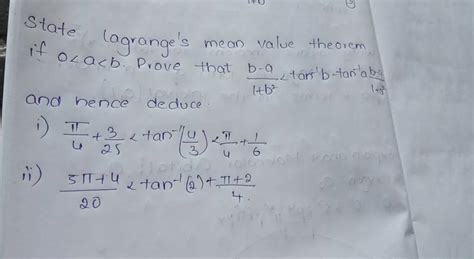 State Lagrange's mean value theorem
if 0<a<b. Prove that (b-a)/(1+b²) < tan⁻¹b - tan⁻¹a
and hence deduce.
i) π/4 + 3/25 < tan⁻¹(4/3) < π/4 + 1/6
ii) (5π+4)/20 < tan⁻¹(2) + (π+2)/4.